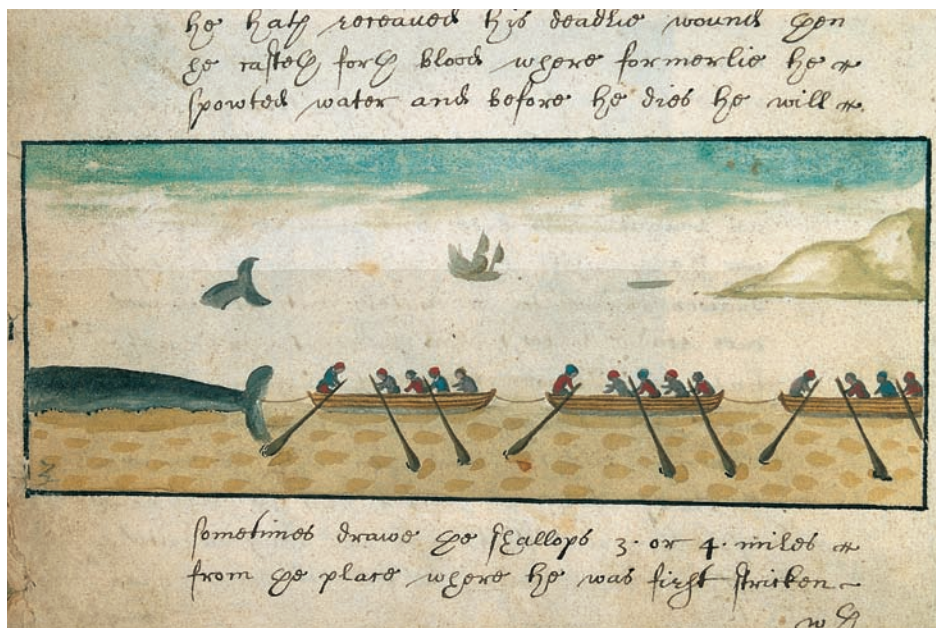 he hath receaued his deadlie wound then
he casteth forth blood where formerlie he
spowted water and before he dies he will
sometimes drawe the shallops 3. or 4. miles
from the place where he was first stricken
wth